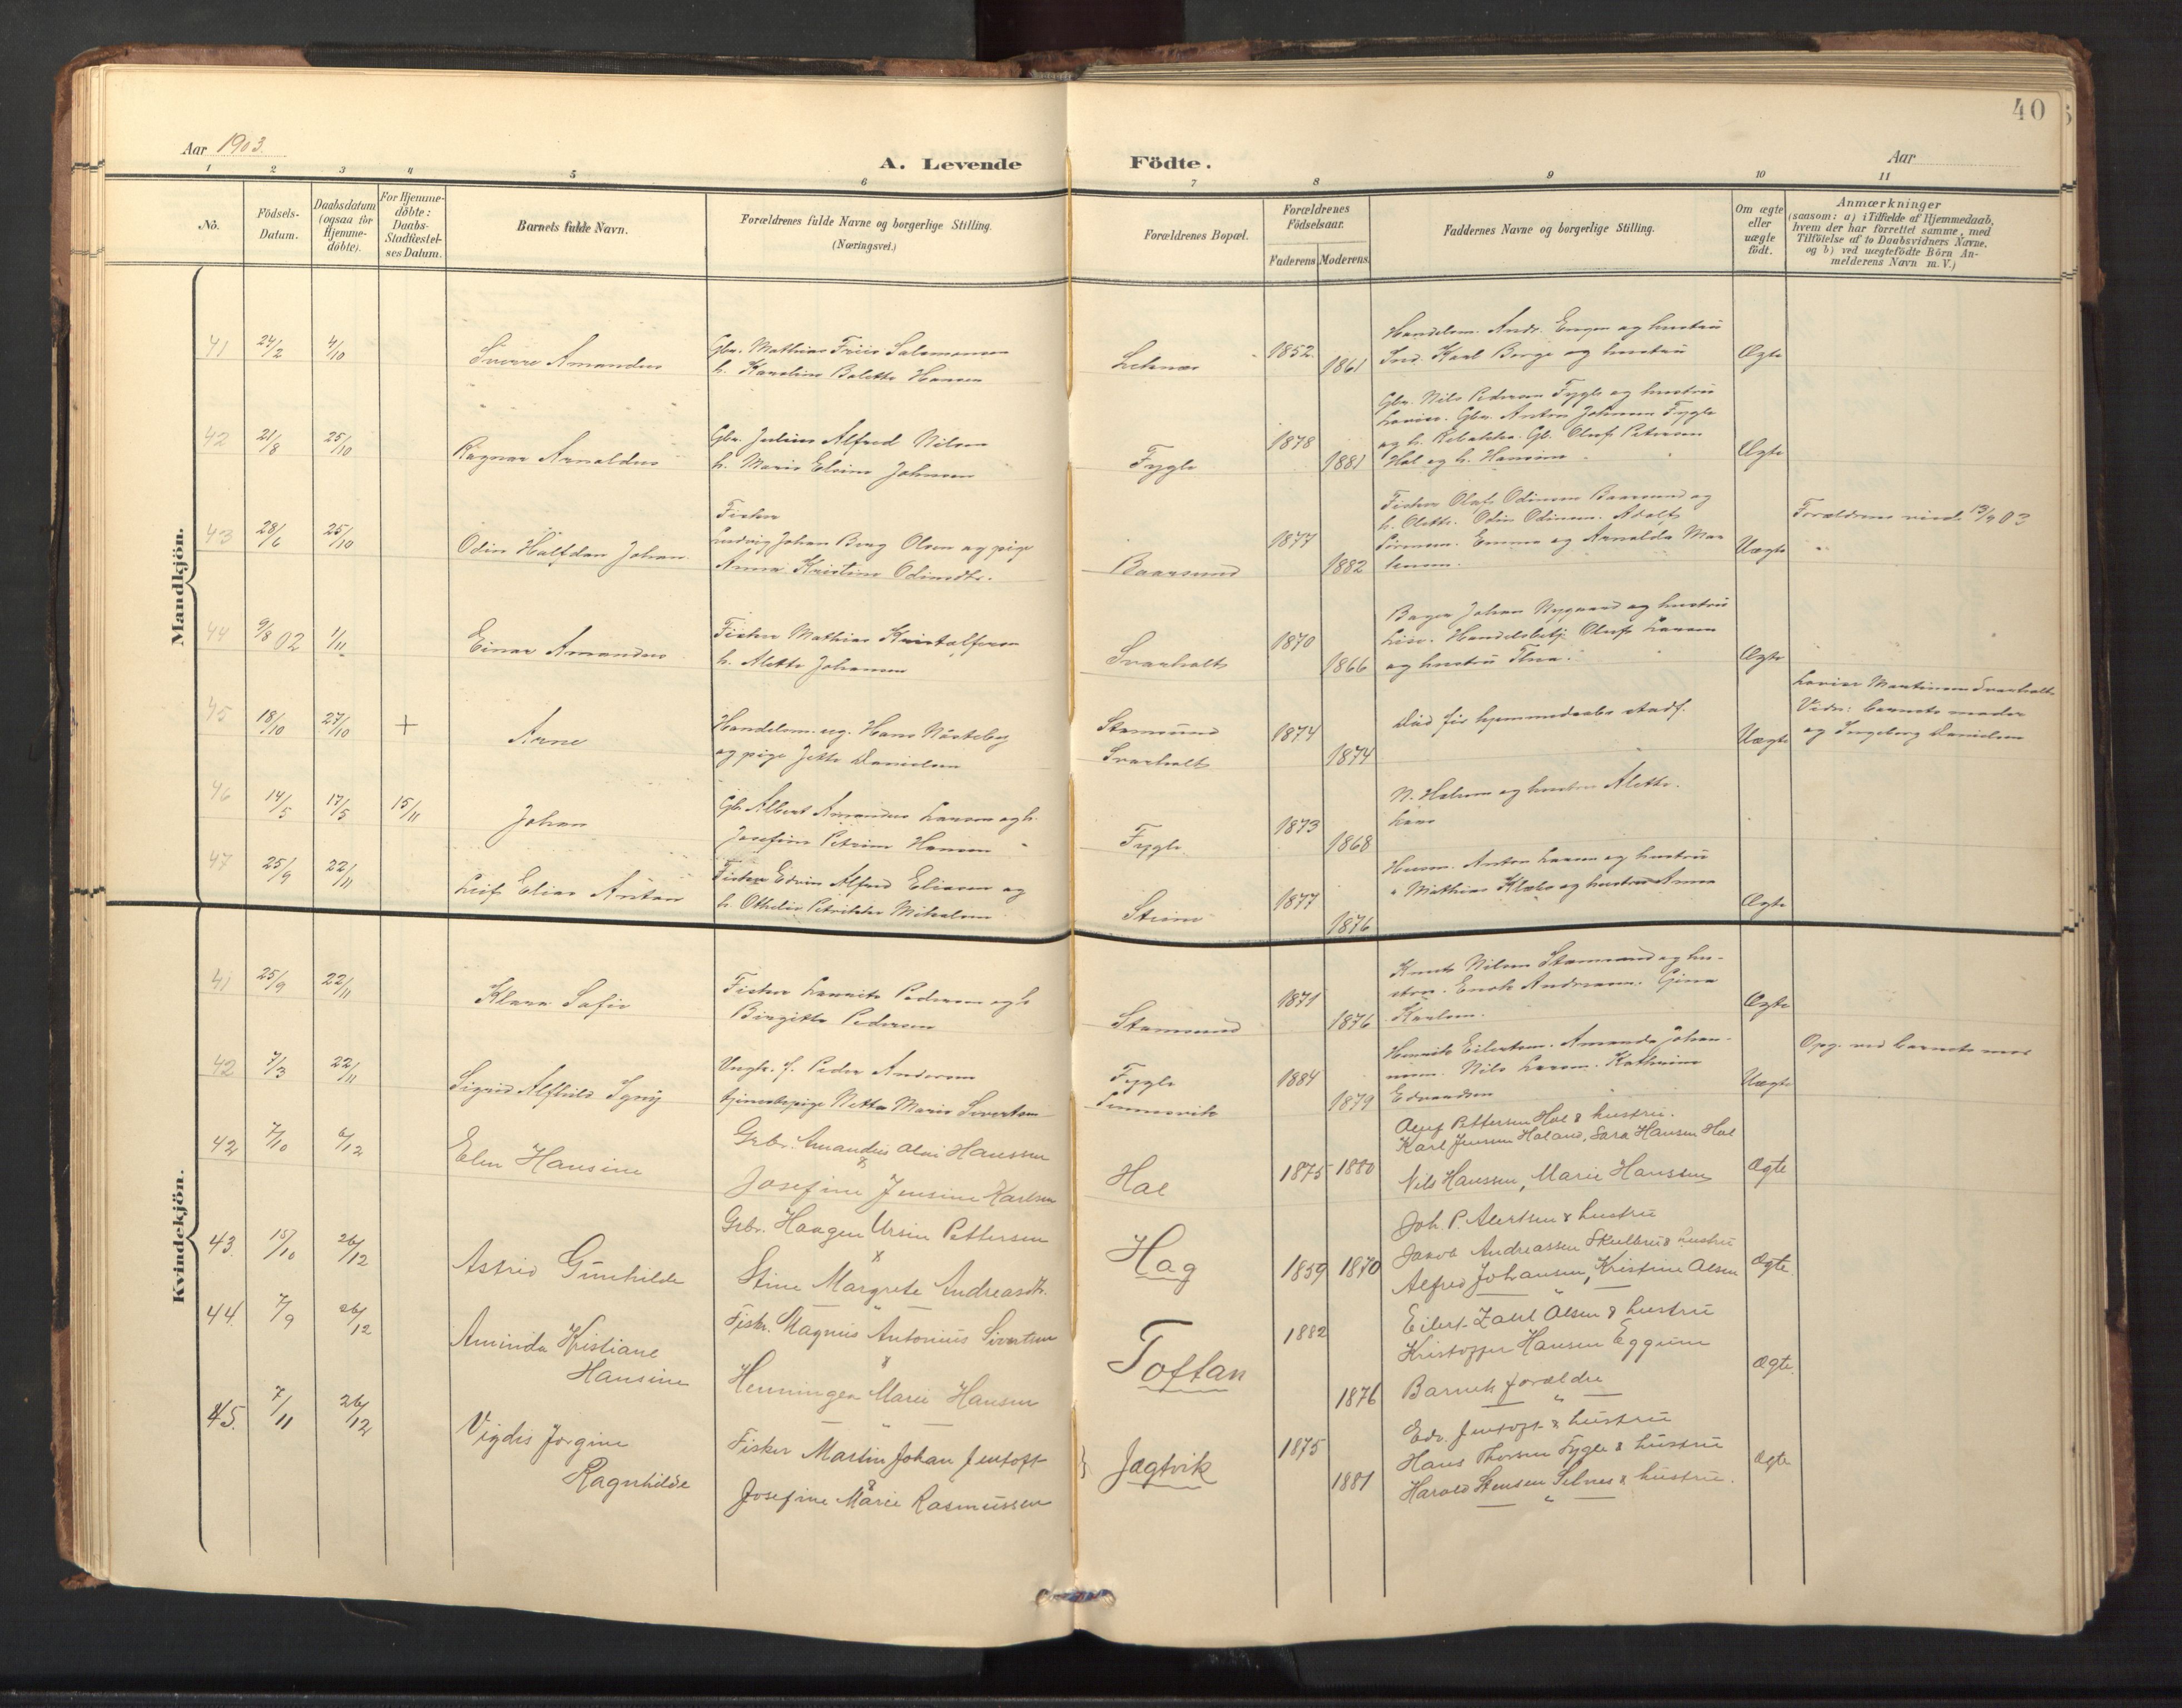 40
Aar 1903.
A. Levende Födte.
Aar
1 2 3 4 5 6 7 8 9 10 11
No.
Födsels-
Datum.
Daabsdatum
(ogsaa for
Hjemme-
döbte).
For Hjemme-
döbte:
Daabs-
Stadfiestel-
ses Datum.
Barnets fulde Navn.
Forældrenes fulde Navne og borgerlige Stilling.
(Næringsvei.)
Forældrenes Bopæl.
Forældrenes
Födselsaar.
Faderens Moderens
Faddernes Navne og borgerlige Stilling.
Om ægte
eller
uægte
födt.
Anmærkninger
(saasom: a) i Tilfælde af Hjemmedaab,
hvem der har forrettet samme, med
Tilföielse af to Daabsvidners Navne.
og b) ved uægtefödte Börn An-
melderens Navn m. V.)
Mandkjön.
41 24/2 4/10 Sverre Amandus
Gbr. Mathias Friis Salomonsen
h. Karoline Bolette Hansen
Leknes 1852 1861
Handelsm. Andr. Engen og hustru
Ind. Karl Berge og hustru
Ægte
42 21/8 25/10 Ragnar Arnoldus
Gbr. Julius Alfred Nilsen
h. Marie Elvine Johnsen
Fygle 1878 1881
Gbr. Nils Pedersen Fygle og hustru
Lovise. Gbr. Anton Johnsen Fygle
og h. Rebekka. Gb. Oluf Petersen
Hol og h. Hansine
Ægte
43 28/6 25/10 Odin Halfdan Johan
Fisker
Ludvig Johan Berg Olsen og pige
Anna Kristine Odinsdtr.
Baarsund 1877 1882
Fisker Olaf Odinsen Baarsund og
h. Olette. Odin Odinsen. Adolf
Sörensen. Emma og Arnolda Mar
Uægte
Forældrene viede 13/9 03
44 9/8 02 1/11 Einar Amandus
Fisker Mathias Kristoffersen
h. Alette Johansen
Svarholt 1870 1866
Bager Johan Nygaard og hustru
Lise. Handelsbetj. Oluf Larsen
og hustru Thea.
Ægte
45 18/10 27/10 + Arne
Handelsm. ug. Hans Nösteby
og pige Jette Danielsen
Stamsund
Svarholt 1874 1874
Död för hjemmedaabs stadf.
Uægte
Lovise Martinsen Svarholt
Vidn: barnets moder
og Ingeborg Danielsen
46 14/5 17/5 15/11 Johan
Gb. Albert Amandus Larsen og h.
Josefine Petrine Hansen
Fygle 1873 1868
N. Holsen og hustru Alette.
47 25/9 22/11 Leif Elias Anton
Fisker Edvin Alfred Eliasen og
h. Othelie Petrikke Mikalsen
Steine 1877 1876
Husm. Anton Larsen og hustru
" Mathias Klæbo og hustru Anna
Ægte
Kvindekjön.
41 25/9 22/11 Klara Sofie
Fisker Laurits Pedersen og h
Birgitte Pedersen
Stamsund 1871 1876
Knut Nilsen Stamsund og hu-
stru. Enok Andreasen. Gina
Karlsen.
Ægte
42 7/3 22/11 Sigrid Alfhild Signy
Ungk. f. Peder Andersen
tjenestepige Netta Marie Sivertsen
Fygle
Sennesvik 1884 1879
Henrik Eilertsen. Amanda Johan-
nesen. Nils Larsen. Kathrine
Edvardsen
Uægte
Opg. ved barnets mor
42 7/10 6/12 Elen Hansine
Grbr. Amandus Olai Hanssen
&
Josefine Jensine Karlsen
Hol 1875 1880
Oluf Pettersen Hol & hustru.
Karl Jensen Holand, Sara Hansen Hol
Nils Hanssen, Marie Hanssen
Ægte
43. 15/10 26/12 Astrid Gunhilde
Grbr. Haagen Ursin Pettersen
&
Stine Margrete Andreasdtr.
Hag 1859 1870
Joh. P. Alertsen & hustru
Jakob Andreassen Skulbru & hustru
Alfred Johansen, Kristine Olsen
Ægte.
44. 7/9 26/12 Aminda Kristiane
Hansine
Fisker. Magnus Antonius Sivertsen
&
Henningea Marie Hansen
Toftan 1882 1876
Eilert Zahl Olsen & hustru
Kristoffer Hansen Eggum
Barnets forældre
Ægte.
45. 7/11 26/12 Vigdis Jorgine
Ragnhilde
Fisker Martin Johan Jentoft
&
Josefine Marie Rasmussen
} Jægtvik 1875 1881
Edv. Jentoft & hustru
Hans Thorsen Fygle & hustru
Harold Stensen Selnes & hustru.
Ægte